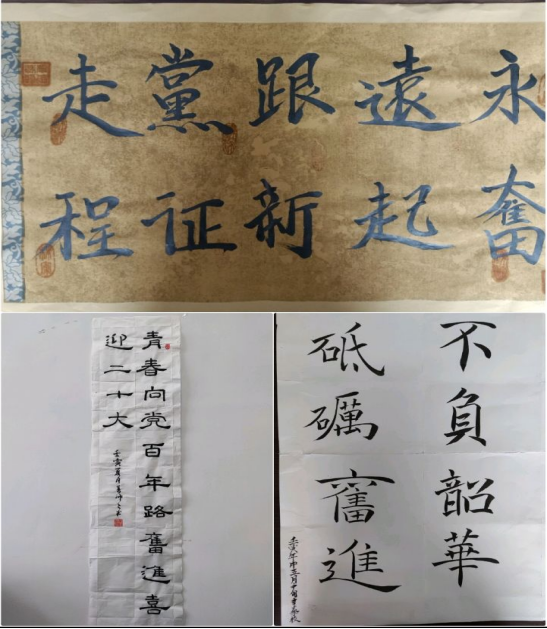 永遠跟黨走
奮起新证程
青春向党百年路奮進喜
迎二十大
壬寅
不負韶華
砥礪奮進
壬寅年